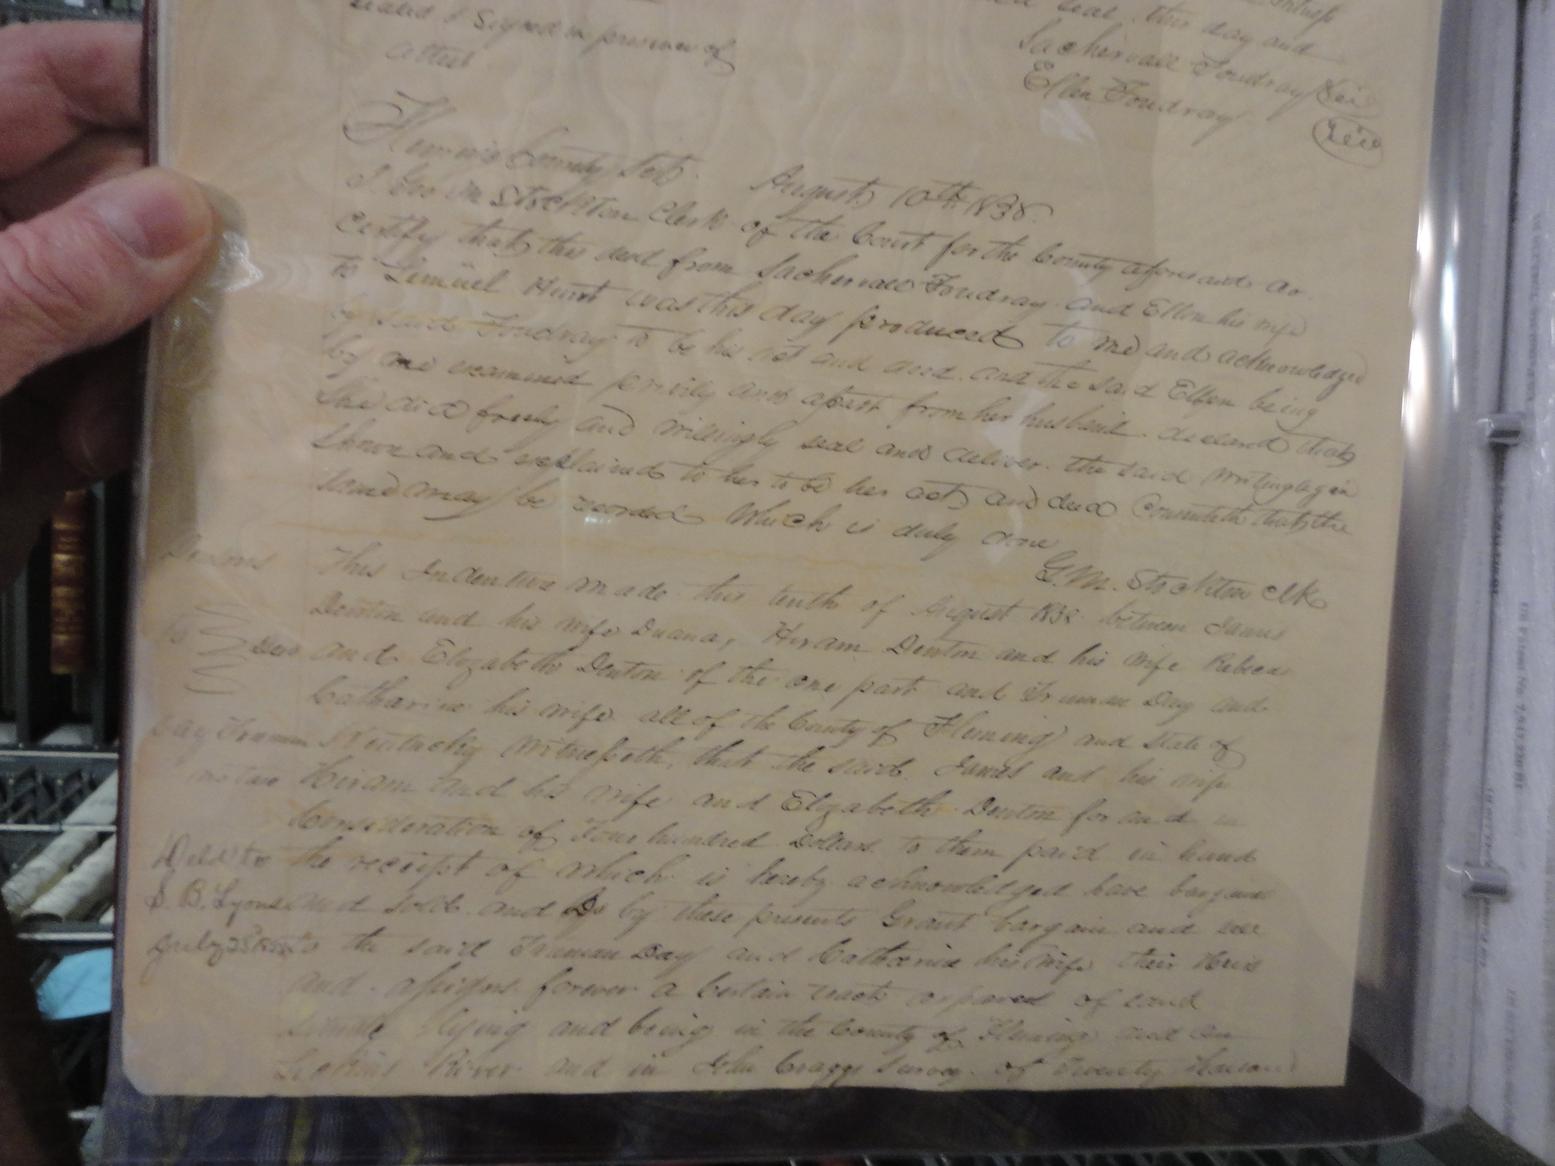 sealed & Signed in presence of
seal this day and
attest
Sachervall Foudray
Ellen Foudray
Fleming County Sct. August 10th 1838
I Geo M Stockton Clerk of the Court for the County aforesaid do
certify that this deed from Sachervall Foudray and Ellen his wife
to Lemuel Hurst was this day produced to me and acknowledged
by said Foudray to be his act and deed. and the said Ellen being
by me examined privily and apart from her husband declared that
She did freely and willingly seal and deliver the said writing again
Shown and explained to her to be her act and deed Consenteth that the
same may be recorded Which is duly done
G. M. Stockton clk
This Indenture made this tenth of August 1838 between James
Denton and his wife Duana, Hiram Denton and his wife Rebeca
to Deed and Elizabeth Denton of the one part and Truman Day and
Catharine his wife all of the County of Fleming and State of
Day Truman Kentucky Witnesseth, that the said James and his wife
Hiram and his wife and Elizabeth Denton for and in
Consideration of Four hundred Dollars to them paid in hand
Deld to the receipt of which is hereby acknowledged have bargained
S. B. Lyons and sold and Do by these presents Grant bargain and sell
July to the said Truman Day and Catharine his wife their Heirs
and assigns forever a Certain tract or parcel of land
lying and being in the County of Fleming and on
Licking River and in John Craggs Survey of Twenty Thousand